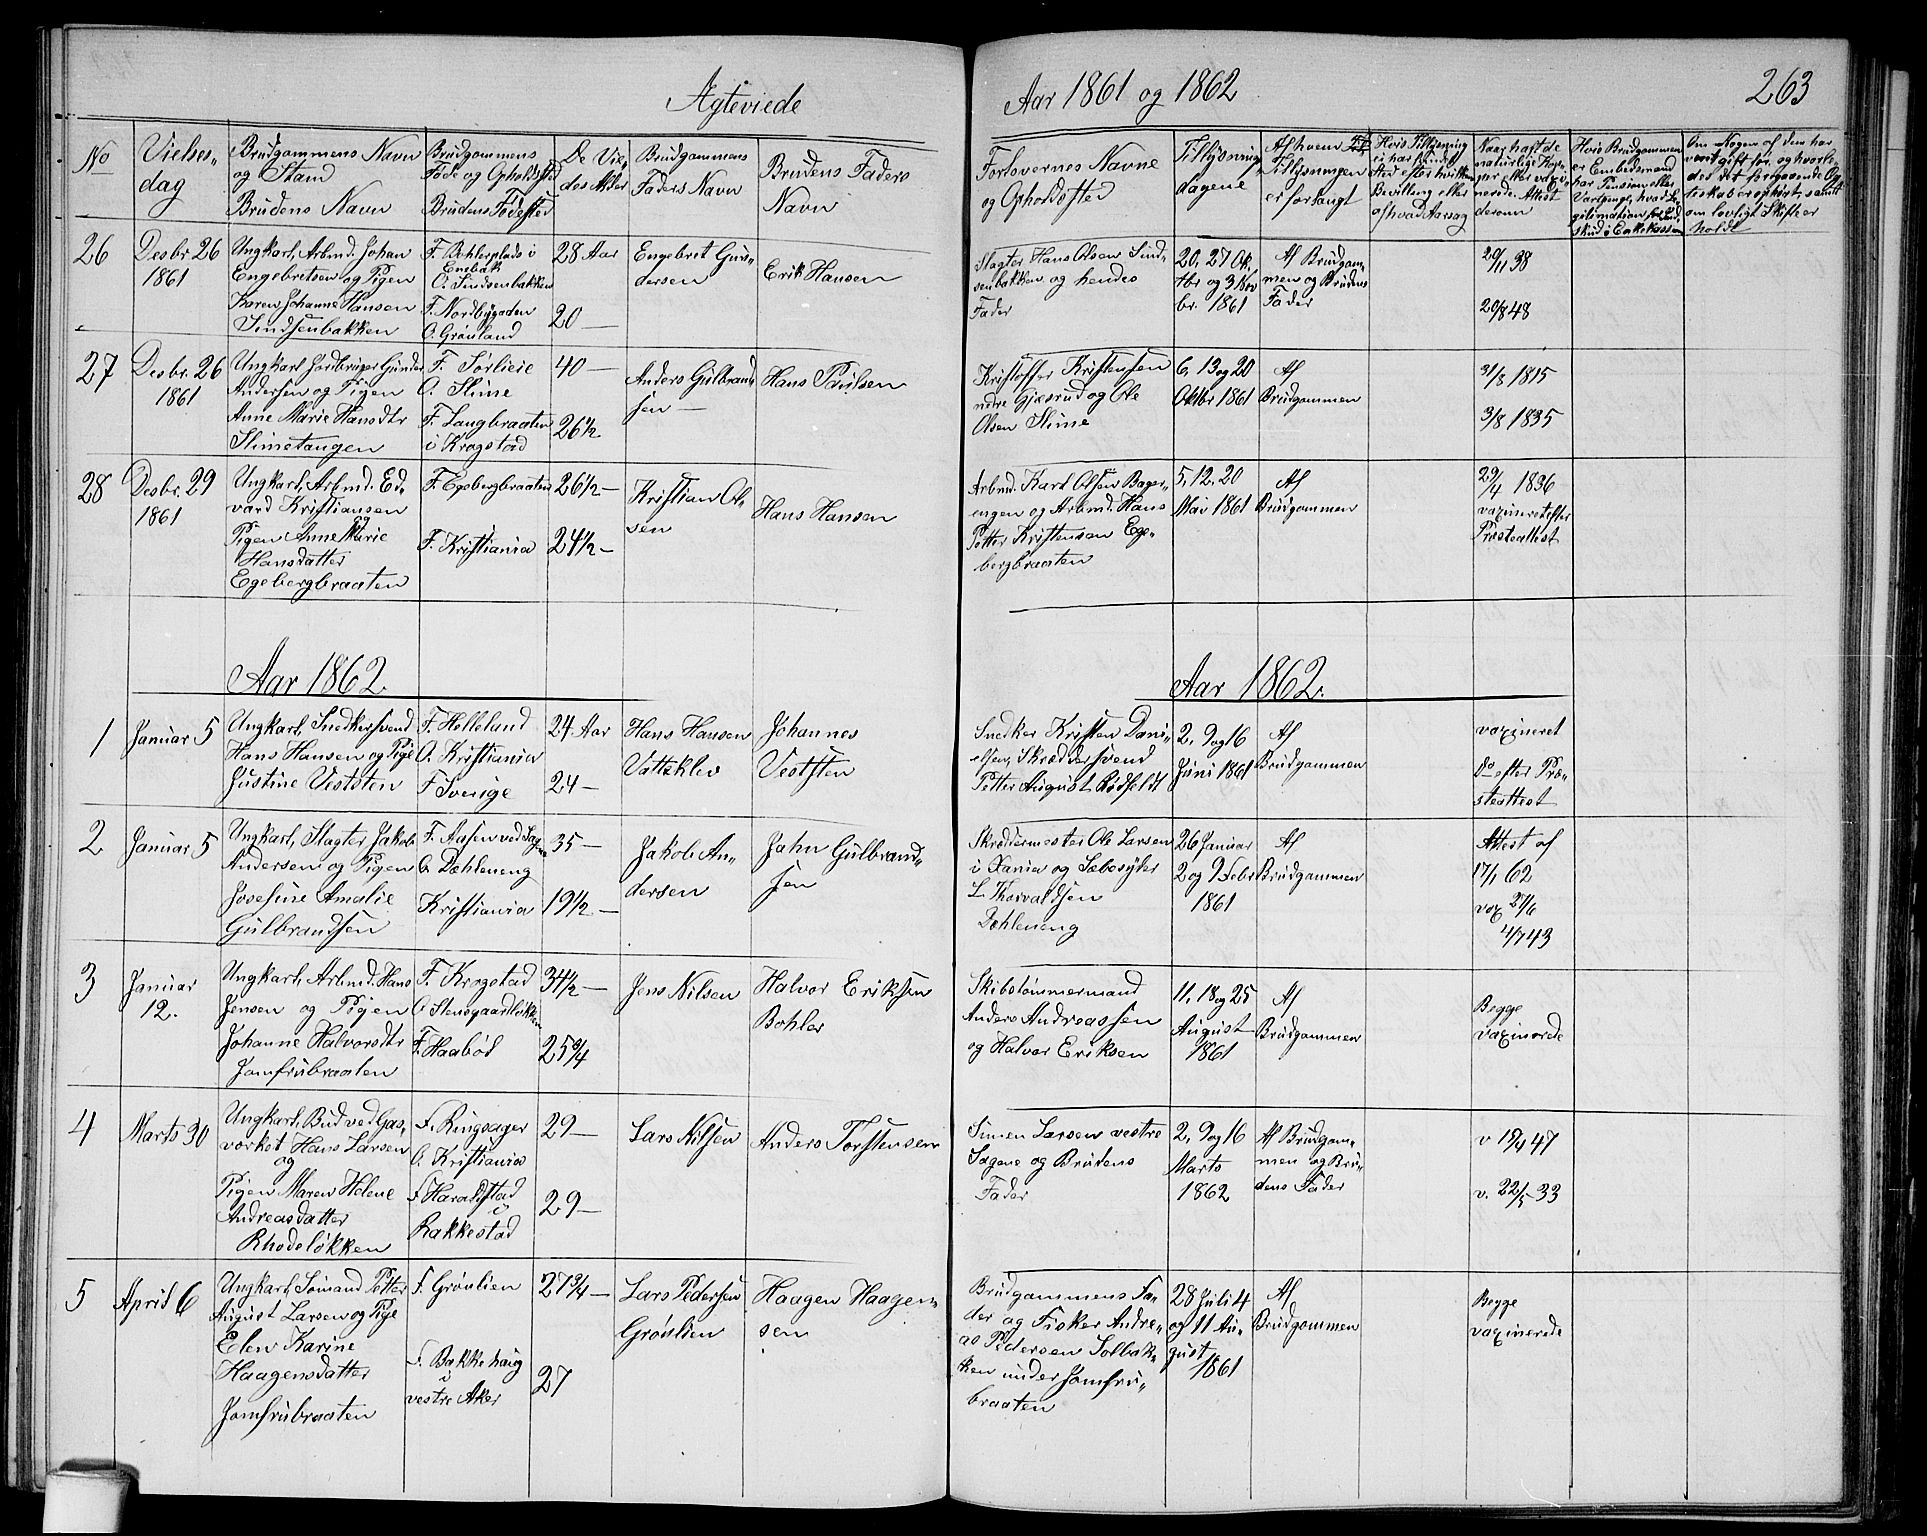 Agteviede
Aar 1861 og 1862
263
No
Vielses-
dag
Brudgommens Navn
og Stand
Brudens Navn
Brudgommens
Føde og Opholdssted
Brudens Fødested
De Vie-
des Alder
Brudgommens
Faders Navn
Brudens Faders
Navn
Forlovernes Navne
og Opholdssted
Tillysnings-
dagene
Af hvem
Tillysningen
er forlangt
Hvis Tillysning
ei har fundet
Sted efter hvilken
Bevilling eller
af hvad Aarsag
Naar havt de
naturlige Kop-
per eller vaxi-
nerede. Attest
derom
Hvis Brudgommen
er Embedsmand
har Pension eller
Vartpenge, hvad Le-
gitimation for Ind-
skud i Enkekassen
Om Nogen af dem har
vært gift før og hvorle-
des det foregaaende Æg-
teskab er ophævt, samt
om lovligt Skifte er
holdt
26
Desbr 26
1861
Ungkarl, Arbmd. Johan
Engebretsen og Pigen
Karen Johanne Hansen
Sindsenbakken
F. Bøhlerplads i
Enebak
O. Sindsenbakken
F. Nordbygaden
O. Grønland
28 Aar
20 —
Engebret Gun-
dersen
Erik Hansen
Slagter Hans Olsen Sind-
senbakken og hendes
Fader
20, 27 Ok-
tbr og 3 Nov
br. 1861
Af Brudgom-
men og Brudens
Fader
20/11 38
20/8 48
27
Desbr. 26
1861
Ungkarl Jordbruger Gunder
Andersen og Pigen
Anne Marie Hansdtr
Slimetangen
F. Sørlieie
O. Slime
F. Langbraaten
i Krogstad
40 —
26 1/2
Anders Gulbrand-
sen —
Hans Paulsen
Kristoffer Kristensen
ndre Gjøsrud og Ole
Olsen Slime
6, 13 og 20
Oktbr 1861
Af
Brudgommen
31/8 1815
3/8 1835
28
Desbr. 29
1861
Ungkarl, Arbmd. Ed-
vard Kristiansen
og
Pigen Anne Marie
Hansdatter
Egebergbraaten
F. Egebergbraaten
F. Kristiania
26 1/2 —
24 1/2 —
Kristian Ol-
sen
Hans Hansen
Arbmd. Karl Olsen Bager-
engen og Arbmd. Hans
Petter Kristensen Ege-
bergbraaten
5, 12, 20
Mai 1861
Af
Brudgommen
29/4 1836
vaxineret efter
Præsteattest
Aar 1862
Aar 1862.
1
Januar 5
Ungkarl, Snedkersvend
Hans Hansen og Pige
Justine Veststen
F. Helleland
O. Kristiania
F Sverige
24 Aar
24 —
Hans Hansen
Vatteklev
Johannes
Veststen
Snedker Kristen Dani-
elsen, Skræddersvend
Petter August Rødfeldt
2, 9 og 16
Juni 1861
Af
Brudgommen
vaxineret
Do efter Præ-
steattest
2
Januar 5
Ungkarl, Slagter Jakob
Andersen og Pigen
Josefine Amalie
Gulbrandsen
F. Aasen ved Sagene
O. Dæhleneng
Kristiania
35 —
19 1/2 —
Jakob An-
dersen
Jahn Gulbrand-
sen
Skrædermester Ole Larsen
i Xania og Sæbesyder
L. Thorvaldsen
Dæhleneng
26 Januar
2 og 9 Febr
1861
Af
Brudgommen
Attest af
17/1 62
vax 27/6
4/7 43
3
Januar
12.
Ungkarl, Arbmd. Hans
Jensen og Pigen
Johanne Halvorsdtr
Jomfrubraaten
F. Krogstad
O. Stensgaardløkken
F. Haabøl
34 1/2 —
25 3/4
Jens Nilsen
Halvor Eriksen
Bøhler
Skibstømmermand
Anders Andreassen
og Halvor Eriksen
11, 18 og 25
August
1861
Af
Brudgommen
Begge
vaxinerede
4
Marts 30
Ungkarl, Bud ved Gas-
værket Hans Larsen
og
Pigen Maren Helene
Andreasdatter
Rhodeløkken
F. Ringsager
O. Kristiania
F. Haralstad
i
Rakkestad
29 —
29 —
Lars Nilsen
Anders Torstensen
Simen Larsen vestre
Sagene og Brudens
Fader
2, 9 og 16
Marts
1862
Af Brudgom-
men og Bru-
dens Fader
v 19/9 47
v. 22/5 33
5
April 6
Ungkarl, Sømand Petter
August Larsen og Pige
Elen Karine
Haagensdatter
Jomfrubraaten
F. Grønlien
F. Bakkehaug
i
vestre Aker
27 3/4 —
27
Lars Pedersen
Grønlien
Haagen Haagen-
sen
Brudgommens Fa-
der og Fisker Andre-
as Pedersen Solbak-
ken under Jomfru-
braaten
28 Juli 4
og 11 Au-
gust
1861
Af
Brudgommen
Begge
vaxinerede